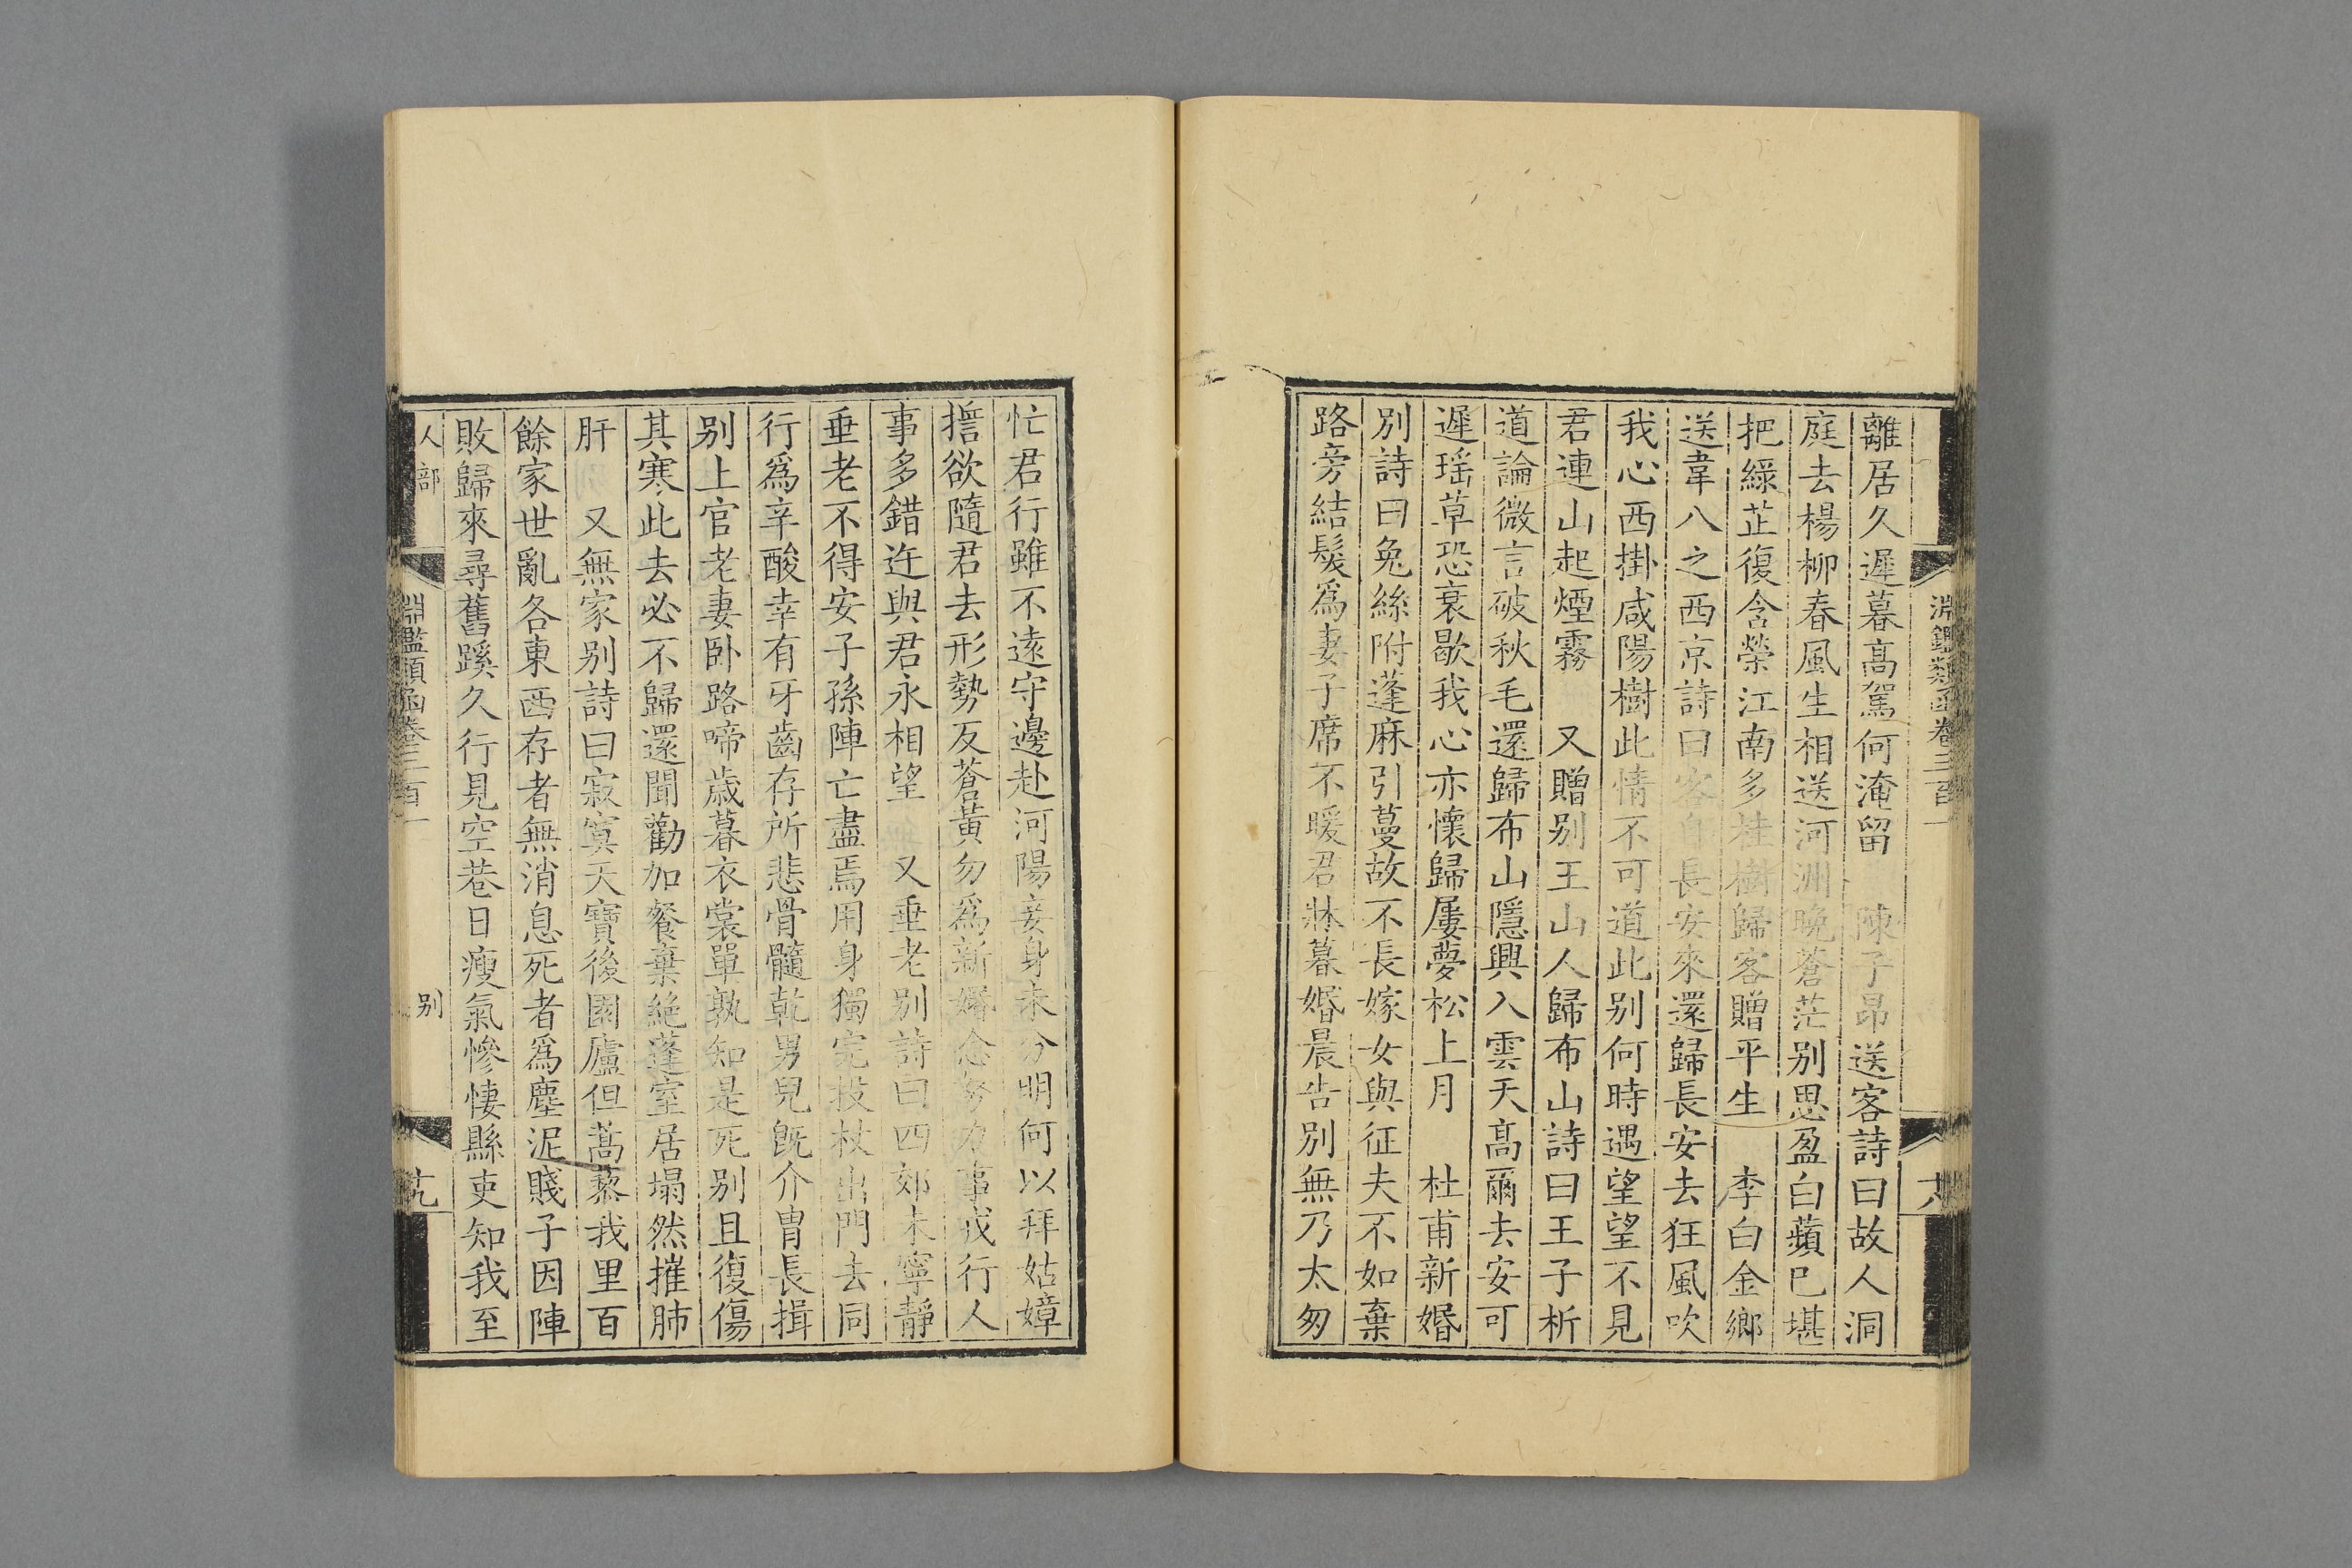 淵鑑類函卷三百一
離居久遲暮高駕何淹留　陳子昂送客詩曰故人洞
庭去楊柳春風生相送河洲晚蒼茫别思盈白蘋已堪
把緑芷復含榮江南多桂樹歸客贈平生　李白金鄉
送韋八之西京詩曰客自長安來還歸長安去狂風吹
我心西掛咸陽樹此情不可道此别何時遇望望不見
君連山起煙霧　又贈别王山人歸布山詩曰王子析
道論微言破秋毛還歸布山隱興入雲天高爾去安可
遲瑶草恐衰歇我心亦懷歸屢夢松上月　杜甫新婚
别詩曰兔絲附蓬麻引蔓故不長嫁女與征夫不如棄
路旁結髮爲妻子席不暖君牀暮婚晨告别無乃太匆
忙君行雖不遠守邊赴河陽妾身未分明何以拜姑嫜
擔欲隨君去形勢反蒼黃勿爲新婚念努力事戎行人
事多錯迕與君永相望　又垂老别詩曰四郊未寧靜
垂老不得安子孫陣亡盡焉用身獨完投杖出門去同
行爲辛酸幸有牙齒存所悲骨髓乾男兒既介胄長揖
别上官老妻卧路啼歲暮衣裳單孰知是死别且復傷
其寒此去必不歸還聞勸加餐棄絶蓬室居塌然摧肺
肝　又無家别詩曰寂寞天寶後園廬但蒿藜我里百
餘家世亂各東西存者無消息死者爲塵泥賤子因陣
敗歸來尋舊蹊久行見空巷日瘦氣慘悽縣吏知我至
人部
淵鑑類函卷三百一
别